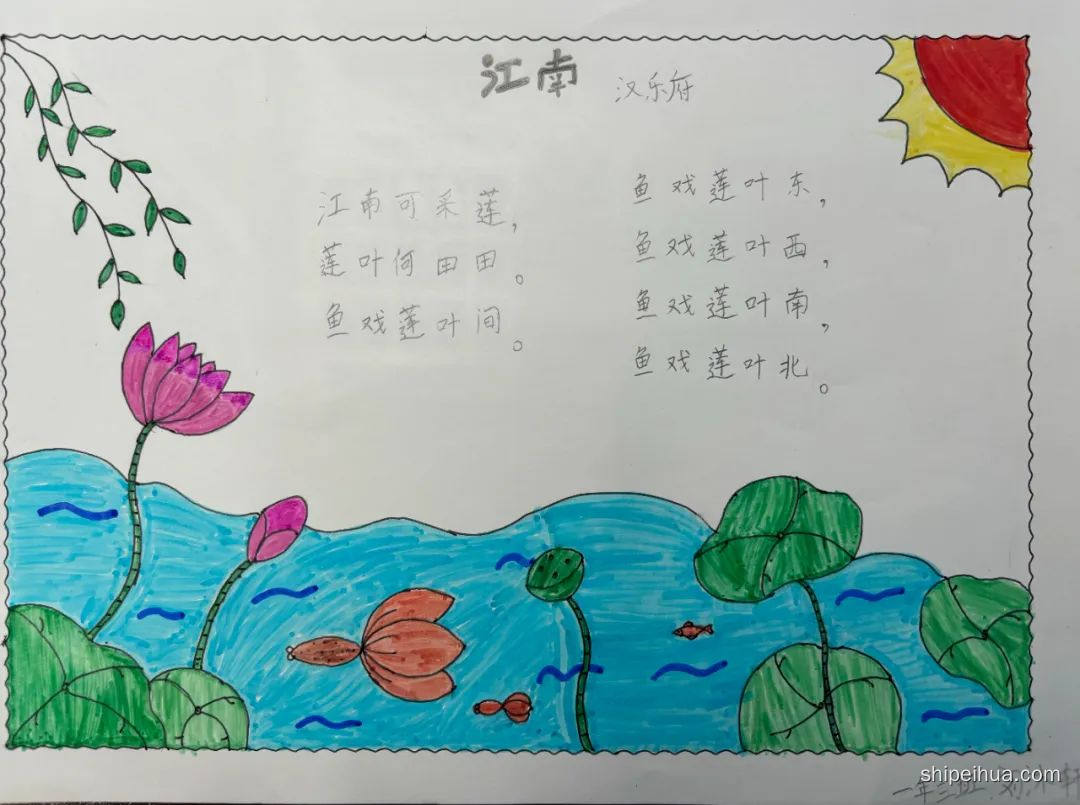 江南 汉乐府
江南可采莲，
莲叶何田田。
鱼戏莲叶间。
鱼戏莲叶东，
鱼戏莲叶西，
鱼戏莲叶南，
鱼戏莲叶北。
shipeihua.com
一年三班 刘沐轩